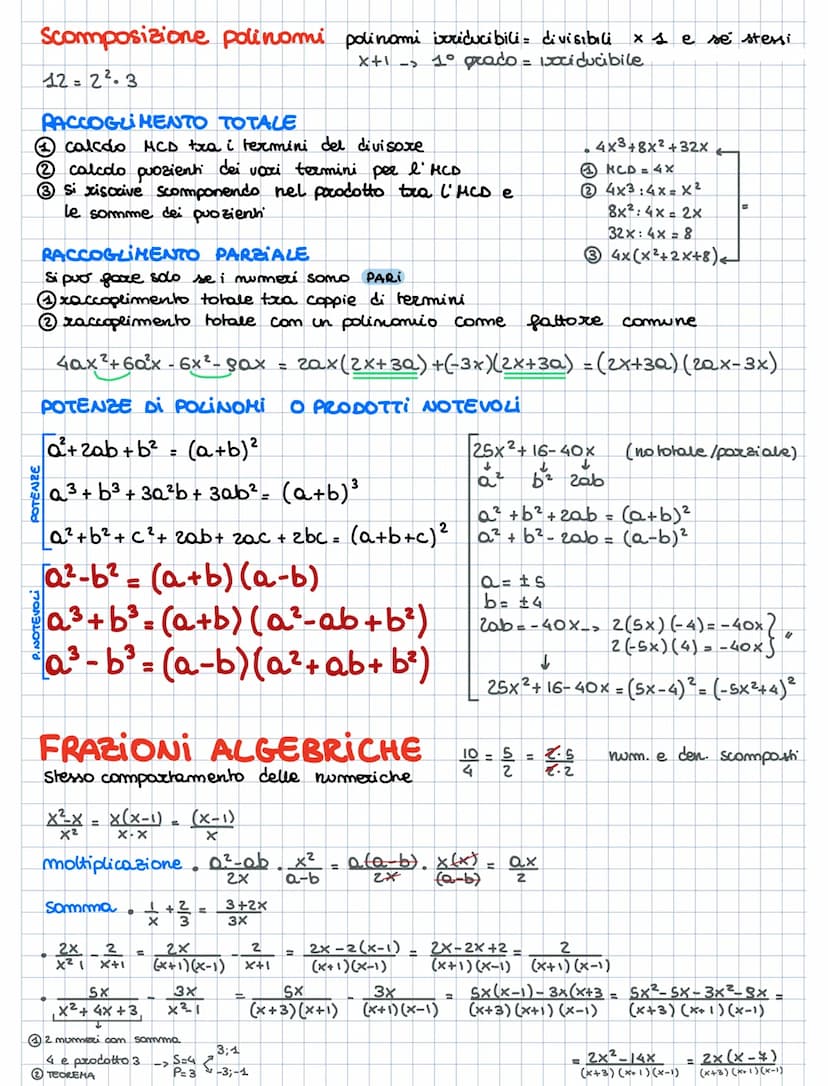 Scomposizione polinomi polinomi irriducibili = divisibili x 1 e se stessi
x+1 -> 1° grado = irriducibile
12 = 2² · 3
RACCOGLIMENTO TOTALE
① calcolo MCD tra i termini del divisore
② calcolo quozienti dei vari termini per l'MCD
③ si riscrive scomponendo nel prodotto tra l'MCD e
le somme dei quozienti
• 4x³+8x²+32x
① MCD = 4x
② 4x³:4x = x²
8x²:4x = 2x
32x:4x = 8
③ 4x(x²+2x+8)
=
RACCOGLIMENTO PARZIALE
si può fare solo se i numeri sono PARI
① raccoglimento totale tra coppie di termini
② raccoglimento totale con un polinomio come fattore comune
4ax²+6a²x - 6x² - 9ax = 2ax(2x+3a)+(-3x)(2x+3a) = (2x+3a)(2ax-3x)
POTENZE Di POLINOMI O PRODOTTI NOTEVOLI
POTENZE
a²+2ab+b² = (a+b)²
a³+b³+3a²b+3ab² = (a+b)³
a²+b²+c²+2ab+2ac+2bc = (a+b+c)²
P. NOTEVOLI
a²-b² = (a+b)(a-b)
a³+b³ = (a+b)(a²-ab+b²)
a³-b³ = (a-b)(a²+ab+b²)
25x²+16-40x (no totale/parziale)
↓ ↓ ↓
a² b² 2ab
a²+b²+2ab = (a+b)²
a²+b²-2ab = (a-b)²
a = ±5
b = ±4
2ab = -40x -> 2(5x)(-4) = -40x
2(-5x)(4) = -40x } "
↓
25x²+16-40x = (5x-4)² = (-5x²+4)²
FRAZIONI ALGEBRICHE 10/4 = 5/2 = 2·5/2·2 num. e den. scomposti
stesso comportamento delle numeriche
x²-x/x² = x(x-1)/x·x = (x-1)/x
moltiplicazione • a²-ab/2x · x²/a-b = a(a-b)/2x · x(x)/(a-b) = ax/2
somma • 1/x + 2/3 = 3+2x/3x
• 2x/x² 1 - 2/x+1 = 2x/(x+1)(x-1) - 2/x+1 = 2x-2(x-1)/(x+1)(x-1) = 2x-2x+2/(x+1)(x-1) = 2/(x+1)(x-1)
• 5x/x²+4x+3 - 3x/x²-1 = 5x/(x+3)(x+1) - 3x/(x+1)(x-1) = 5x(x-1)-3x(x+3/(x+3)(x+1)(x-1) = 5x²-5x-3x²-9x/(x+3)(x+1)(x-1) =
① 2 numeri con somma
4 e prodotto 3 -> S=4 P=3 3;1 -3;-1
② TEOREMA
= 2x²-14x/(x+3)(x+1)(x-1) = 2x(x-7)/(x+3)(x+1)(x-1)